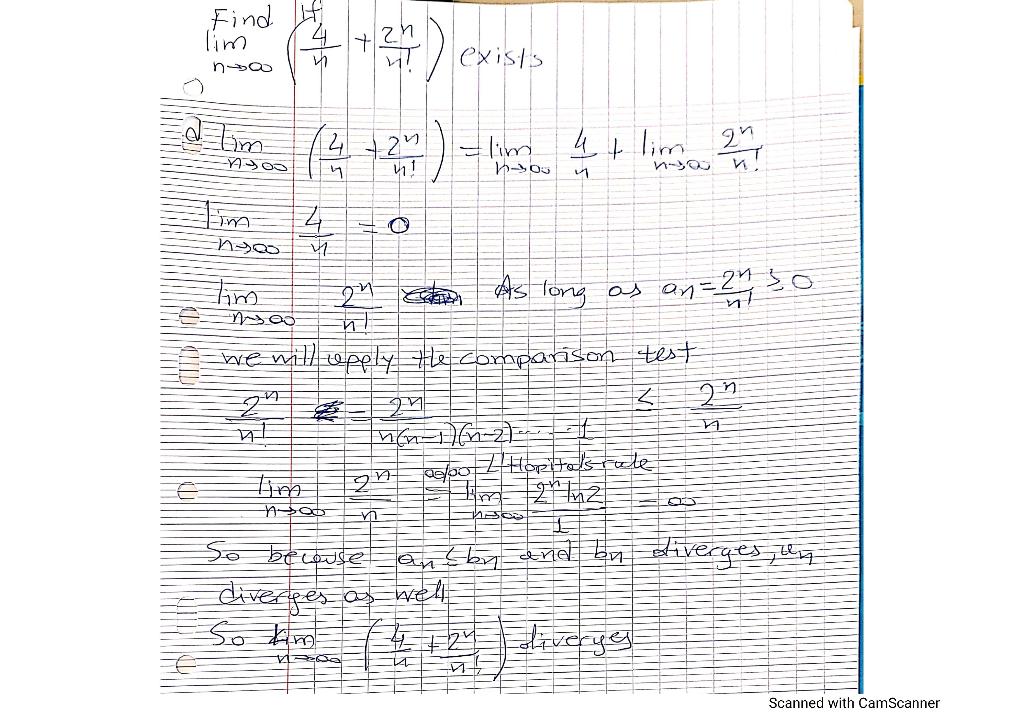 Find If
lim n→∞ (4/n + 2^n/n!) exists
lim n→∞ (4/n + 2^n/n!) = lim n→∞ 4/n + lim n→∞ 2^n/n!
lim n→∞ 4/n = 0
lim n→∞ 2^n/n! As long as an = 2^n/n! ≥ 0
we will apply the comparison test
2^n/n! = 2^n/n(n-1)(n-2)......1 ≤ 2^n/n
lim n→∞ 2^n/n = ∞/∞ L'Hopital's rule lim n→∞ 2^n ln2/1 = ∞
So because an ≤ bn and bn diverges, an
diverges as well
So lim n→∞ (4/n + 2^n/n!) diverges
Scanned with CamScanner